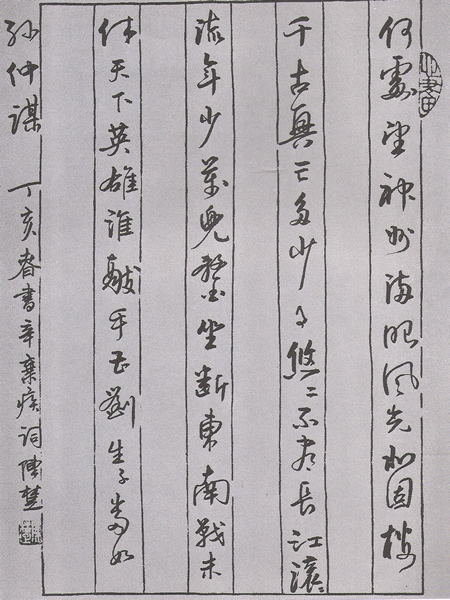 何處望神州滿眼風光北固樓
千古興亡多少事悠悠不盡長江滾滾
流年少萬兜鍪坐斷東南戰未
休天下英雄誰敵手曹劉生子當如
孫仲謀 丁亥春書辛棄疾詞陳